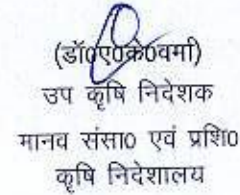 (डॉ0ए0के0वर्मा)
उप कृषि निदेशक
मानव संसा0 एवं प्रशि0
कृषि निदेशालय